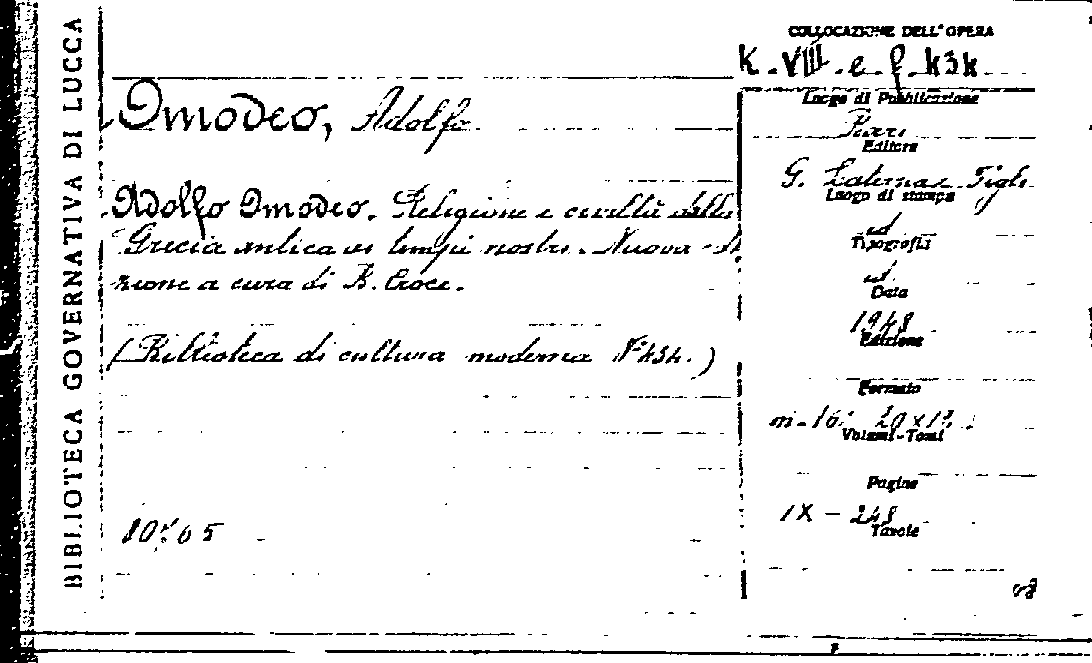 BIBLIOTECA GOVERNATIVA DI LUCCA
COLLOCAZIONE DELL'OPERA
K. VIII. e. f. 434
Omodeo, Adolfo
Adolfo Omodeo. Religione e civiltà dalla
Grecia antica ai tempi nostri. Nuova
zione a cura di B. Croce.
(Biblioteca di cultura moderna N° 434.)
Luogo di Pubblicazione
Bari
Editore
G. Laterza Figli
Luogo di stampa
id
Tipografia
id.
Data
1948
Edizione
Formato
in-16°
Volumi-Tomi
Pagine
IX - 248
Tavole